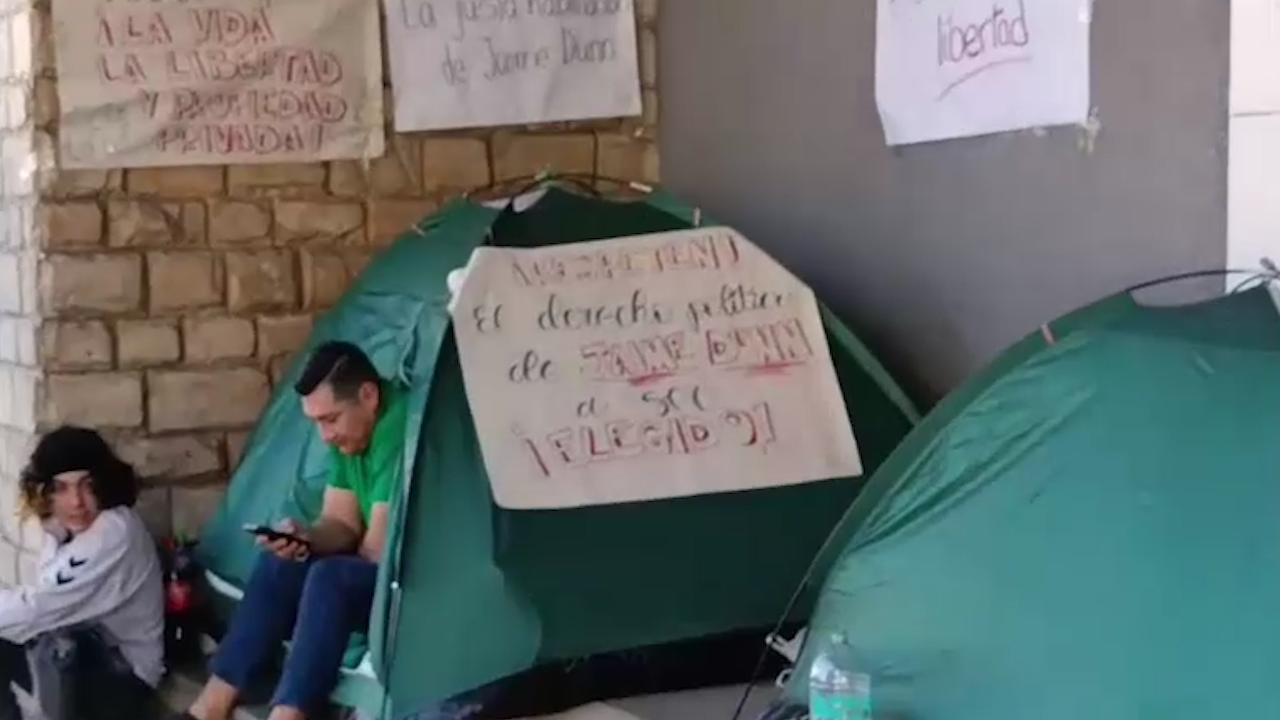 ¡LA VIDA
LA LIBERTAD
Y PROPIEDAD
PRIVADA!
La justa
de Jaime Dunn
libertad
¡RESPETEN!
El derecho político
de JAIME DUNN
a ser
¡ELEGIDO!